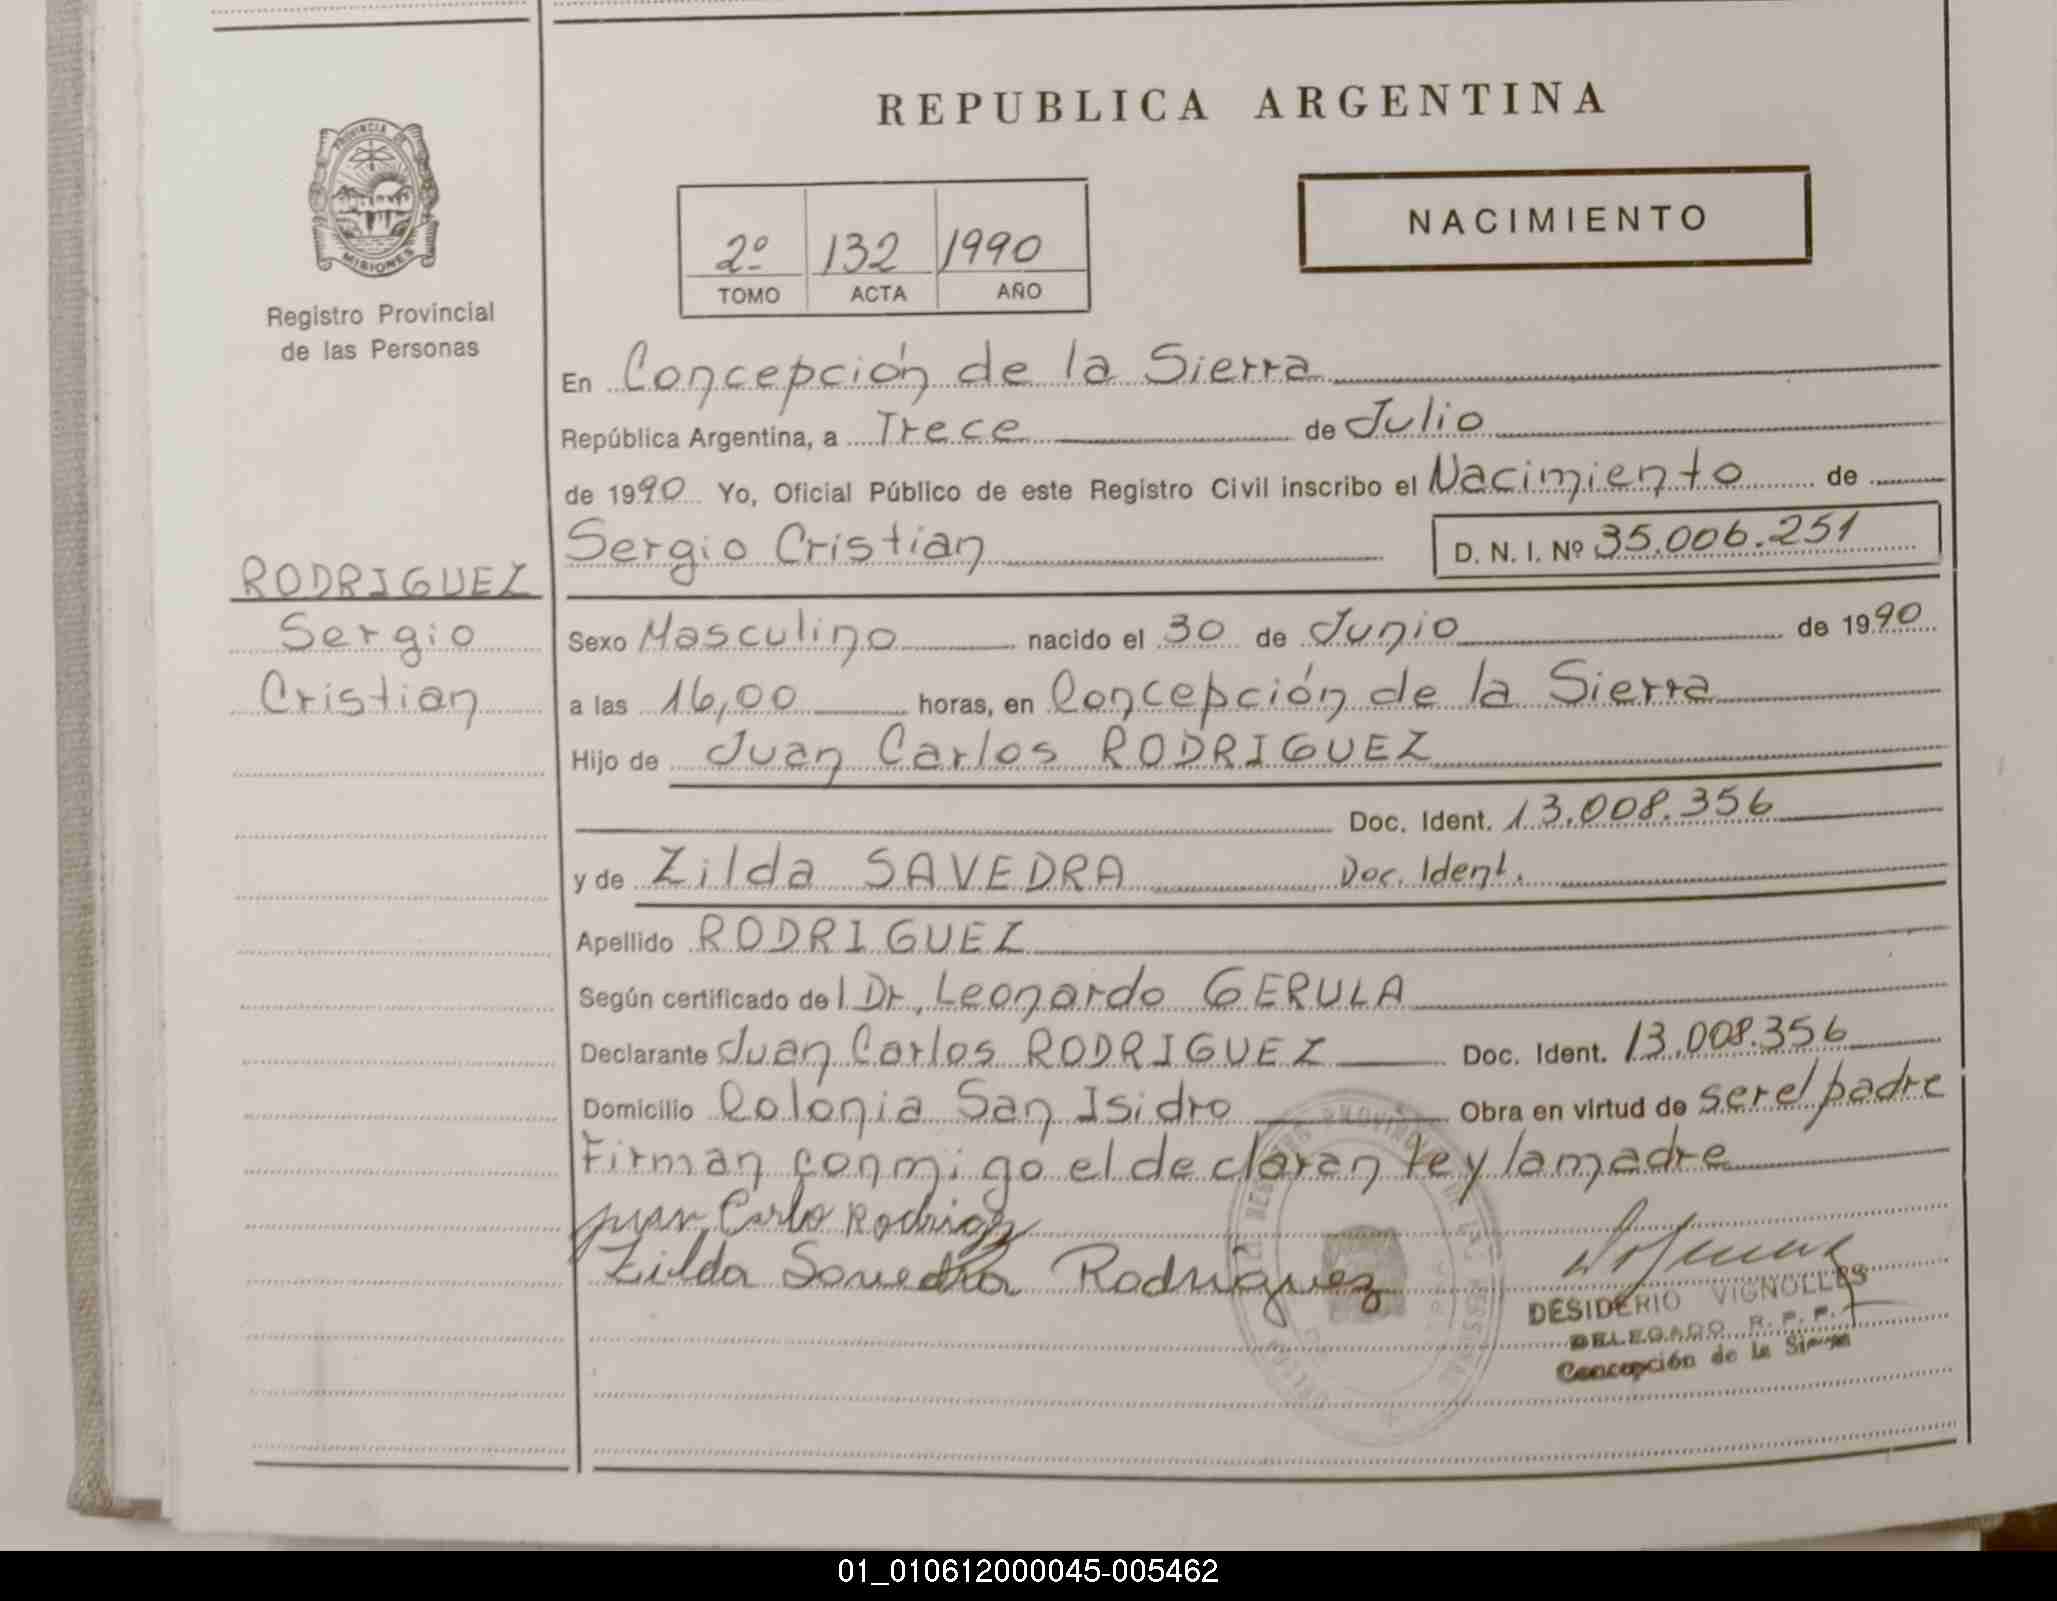 REPUBLICA ARGENTINA
PROVINCIA DE MISIONES
Registro Provincial
de las Personas
2º 132 1990
TOMO ACTA AÑO
NACIMIENTO
En Concepción de la Sierra
República Argentina, a Trece de Julio
de 1990 Yo, Oficial Público de este Registro Civil inscribo el Nacimiento de
Sergio Cristian D. N. I. Nº 35.006.251
RODRIGUEZ
Sergio
Cristian
Sexo Masculino nacido el 30 de Junio de 1990
a las 16,00 horas, en Concepción de la Sierra
Hijo de Juan Carlos RODRIGUEZ
Doc. Ident. 13.008.356
y de Zilda SAVEDRA Doc. Ident.
Apellido RODRIGUEZ
Según certificado del Dr. Leonardo GERULA
Declarante Juan Carlos RODRIGUEZ Doc. Ident. 13.008.356
Domicilio Colonia San Isidro Obra en virtud de ser el padre
Firman conmigo el declarante y la madre
Juan Carlo Rodriguez
Zilda Savedra Rodriguez
DESIDERIO VIGNOLLES
DELEGADO R. P. P.
Concepción de la Sierra
01_010612000045-005462